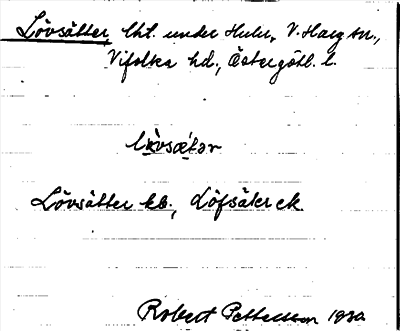 Lövsätter, lht. under Hulu, V. Harg sn.,
Vifolka hd., Östergötl. l.
lö̀vsætər
Lövsätter kb., Löfsäter ek.
Robert Pettersson 1930